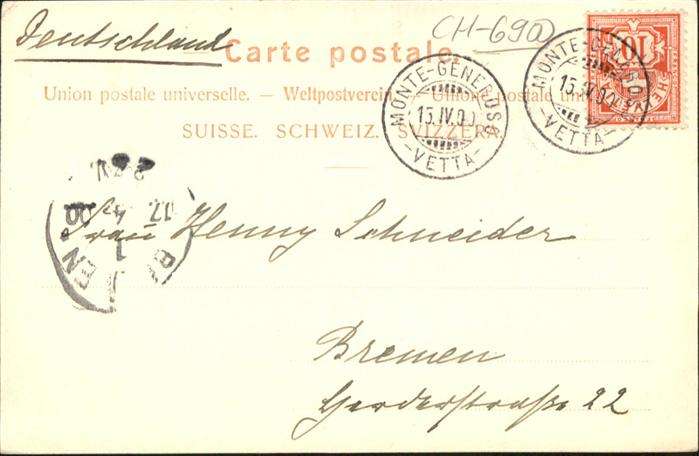 Deutschland
CH-690
Carte postale.
Union postale universelle. — Weltpostverein. — Unione postale
SUISSE. SCHWEIZ. SVIZZERA.
MONTE-GENEROSO
15.IV.00
-VETTA-
MONTE-GENEROSO
15.IV.00
-VETTA-
10
Frau Henny Schneider
BREMEN
1
17.
4
00
Bremen
Herderstraße 22